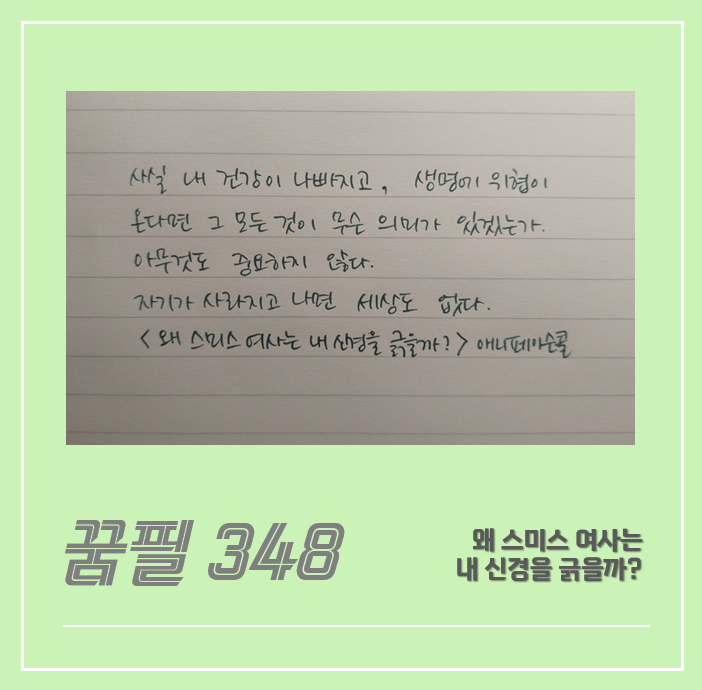 사실 내 건강이 나빠지고, 생명에 위협이
온다면 그 모든 것이 무슨 의미가 있겠는가.
아무것도 중요하지 않다.
자기가 사라지고 나면 세상도 없다.
<왜 스미스 여사는 내 신경을 긁을까?> 애니페이슨콜
꿈필 348
왜 스미스 여사는
내 신경을 긁을까?